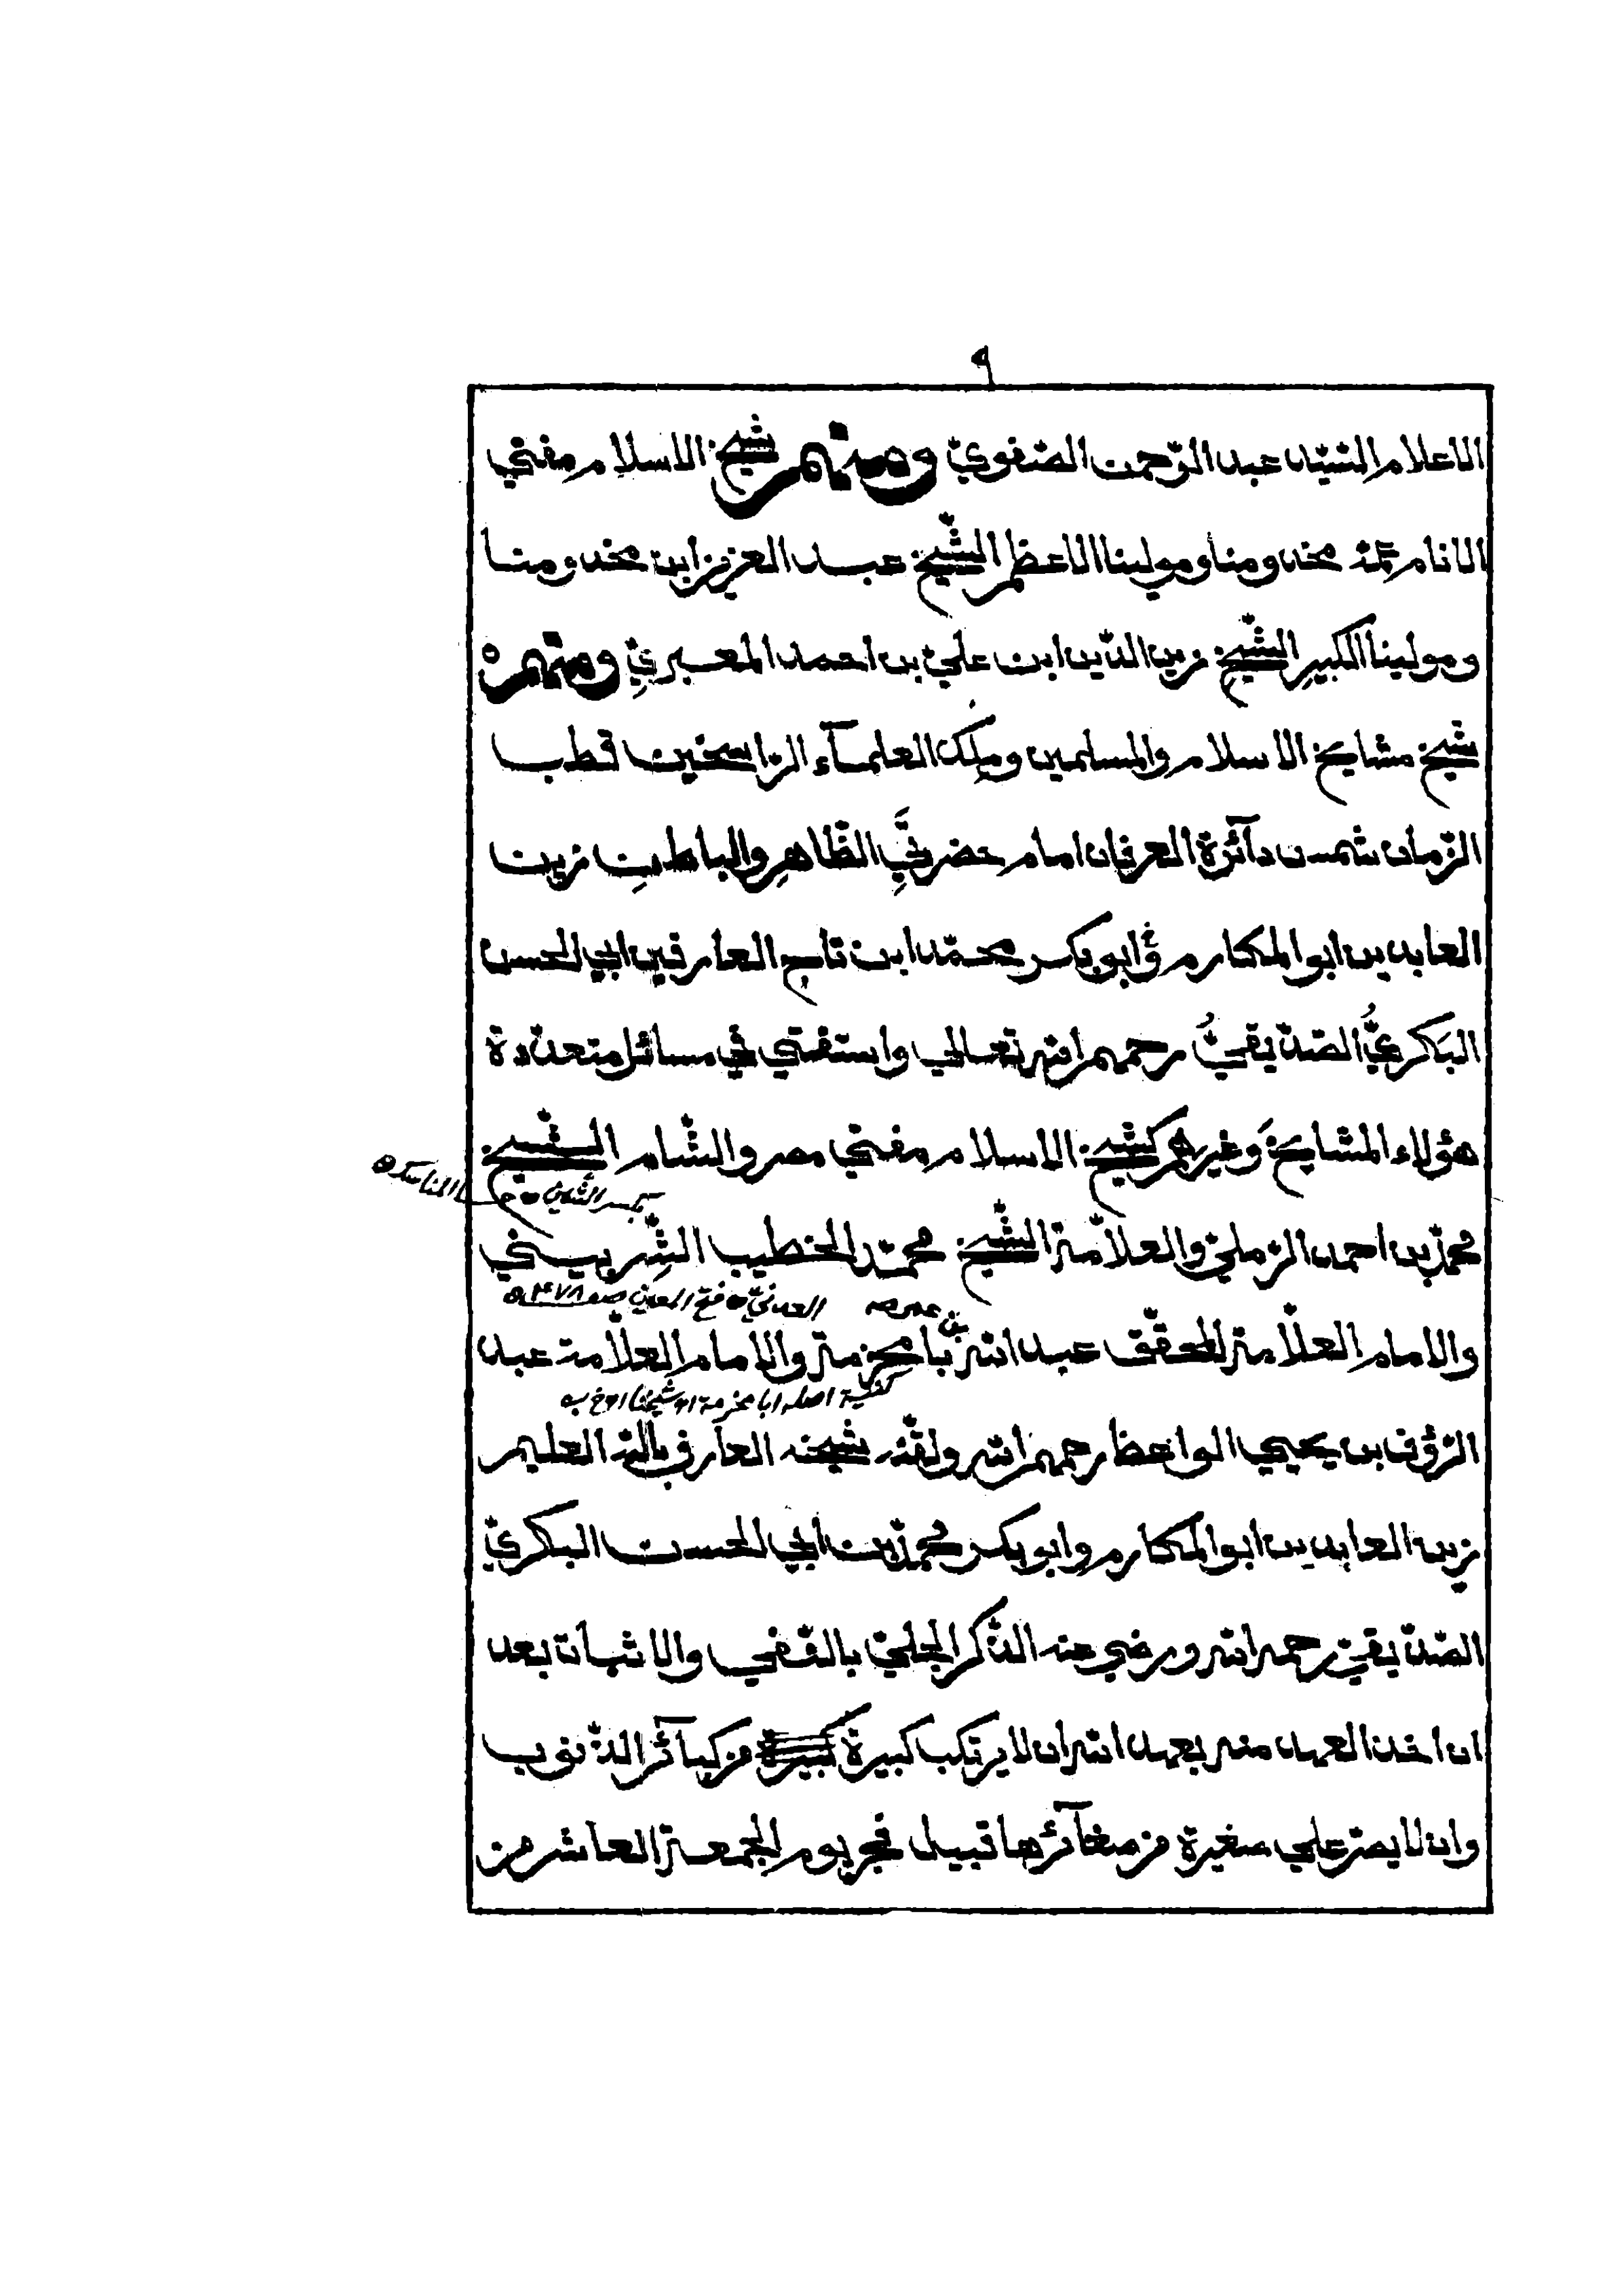 ٩
الاعلام السّيّد عبد الرّحمن الصّفويّ ومنهم شيخ الاسلام مفتي
الانام عمّه مخدومنا ومولينا الاعظم الشّيخ عبد العزيز ابن مخدومنا
ومولينا الكبير الشّيخ زين الدّين ابن عليّ بن احمد المعبريّ ومنهم ه
شيخ مشايخ الاسلام والمسلمين وملك العلمآء الرّاسخين قطب
الزّمان شمس دآئرة العرفان امام حضرتَيِ الظّاهر والباطنِ زين
العابدين ابو المكارم وَابو بكر محمّد ابن تاج العارفين ابي الحسن
البَكريُّ الصّدّيقيُّ رحمهم الله تعالي واستفتي في مسائل متعدّدة
هؤلاء المشايخَ وَغيرهم كشيخ الاسلام مفتي مصر والشّام الشّيخ
بكسر الشّين المناسك ه
محمّد بن احمد الرّمليّ والعلاّمة الشّيخ محمّد الخطيب الشِّربيني
بن عمر صح العدنيّ فتح المعين صـ ٤٧٨ ه
والامام العلاّمة المحقّق عبد الله بامخرمة والامام العلاّمة عبد
كنية اصله ابا مخرمة اه شيخنا
الرّؤف بن يحيي الواعظ رحمهم الله ولقّنه شيخه العارف بالله العليم
زين العابدين ابو المكارم وابو بكر محمّد بن ابي الحسن البكريّ
الصّدّيقيّ رحمه الله ورضي عنه الذّكر الجليّ بالنّفي والاثبات بعد
ان اخذ العهد منه بعهد الله ان لا يرتكب كبيرة كبيرة من كبآئر الذّنوب
وان لا يصرّ علي صغيرة من صغآئرها قبيل فجر يوم الجمعة العاشر من